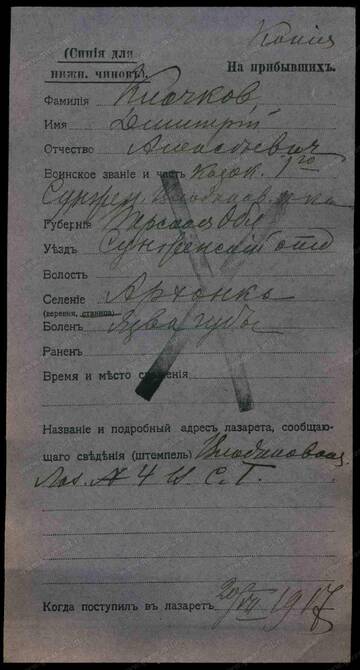 Копия
(Синія для
нижн. чиновъ).
На прибывшихъ.
Фамилія Клочков
Имя Димитрій
Отчество
Воинское званіе и часть Казак. 1го
Сунжен.
Губернія Терская Обл
Уѣздъ Сунженскій отд
Волость
Селеніе Архонка
(деревня, станица)
Боленъ Язва губы
Раненъ
Время и мѣсто
Названіе и подробный адресъ лазарета, сообщаю-
щаго свѣдѣнія (штемпель)
Лаз. № 4 И. С. Г.
Когда поступилъ въ лазаретъ 20/VII 1917